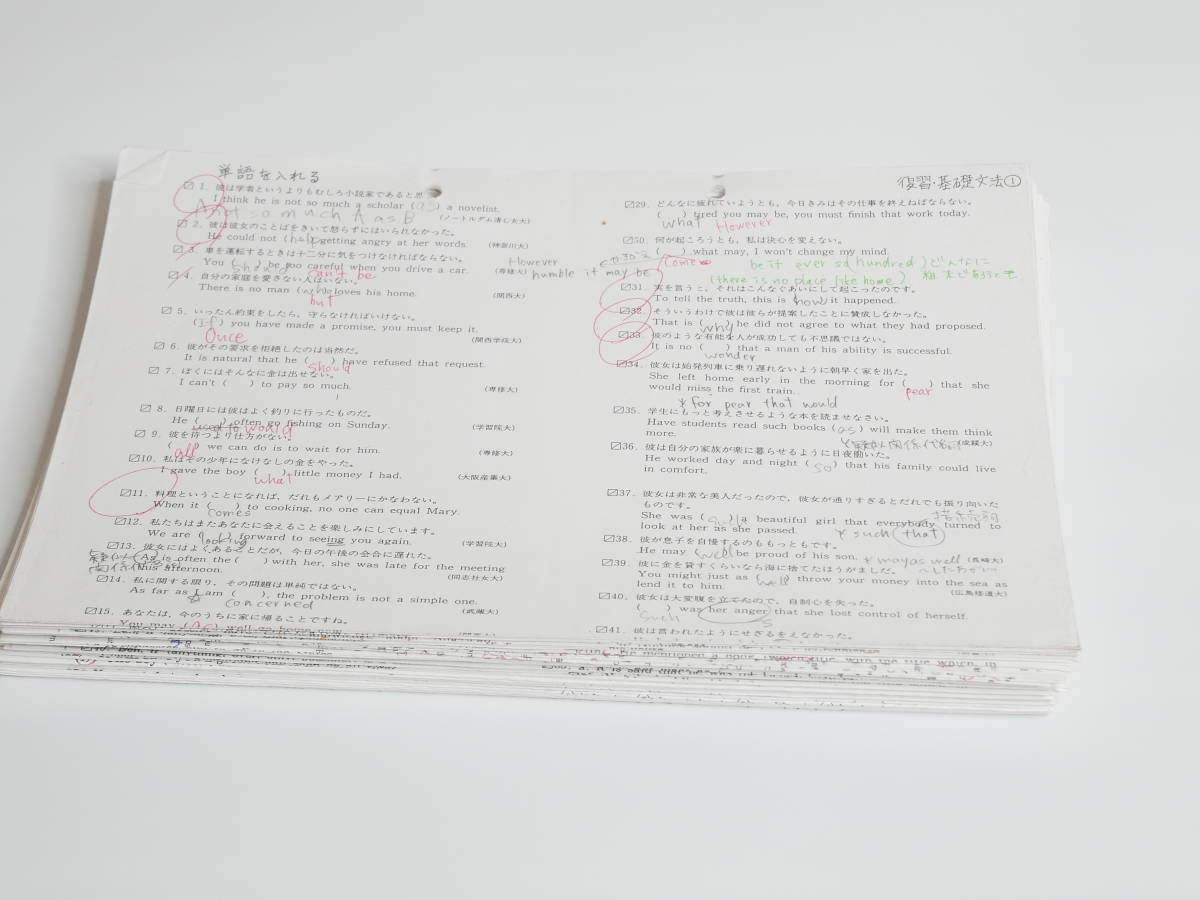 単語を入れる
1. 彼は学者というよりもむしろ小説家であると思
I think he is not so much a scholar (as) a novelist.
A not so much A as B (ノートルダム清心女大)
2. 彼は彼女のことばをきいて怒らずにはいられなかった。
He could not (help) getting angry at her words. (神奈川大)
3. 車を運転するときは十二分に気をつけなければならない。
You ( ) be too careful when you drive a car. (専修大)
should can't be
4. 自分の家庭を愛さない人はいない。
There is no man (who) loves his home. (関西大)
but
5. いったん約束をしたら、守らなければいけない。
(If) you have made a promise, you must keep it.
Once (関西学院大)
6. 彼がその要求を拒絶したのは当然だ。
It is natural that he ( ) have refused that request.
should
7. ぼくにはそんなに金は出せない。
I can't ( ) to pay so much. (専修大)
8. 日曜日には彼はよく釣りに行ったものだ。
He ( ) often go fishing on Sunday. (学習院大)
used to would
9. 彼を待つより仕方がない。
( ) we can do is to wait for him. (専修大)
all
10. 私はその少年になけなしの金をやった。
I gave the boy ( ) little money I had. (大阪産業大)
what
11. 料理ということになれば、だれもメアリーにかなわない。
When it ( ) to cooking, no one can equal Mary.
comes
12. 私たちはまたあなたに会えることを楽しみにしています。
We are ( ) forward to seeing you again. (学習院大)
looking
13. 彼女にはよくあることだが、今日の午後の会合に遅れた。
(As) is often the ( ) with her, she was late for the meeting
this afternoon. (同志社女大)
14. 私に関する限り、その問題は単純ではない。
As far as I am ( ), the problem is not a simple one.
concerned (武蔵大)
15. あなたは、今のうちに家に帰ることですね。
You may (as) well go home now.
復習・基礎文法①
29. どんなに疲れていようとも、今日きみはその仕事を終えねばならない。
( ) tired you may be, you must finish that work today.
what However
30. 何が起ころうとも、私は決心を変えない。
( ) what may, I won't change my mind.
Come
However
humble it may be
be it ever so (hundred) どんなに
(there is no place like home) 粗末であろうとも
31. 実を言うと、それはこんなぐあいにして起こったのです。
To tell the truth, this is (how) it happened.
32. そういうわけで彼は彼らが提案したことに賛成しなかった。
That is (why) he did not agree to what they had proposed.
33. 彼のような有能な人が成功しても不思議ではない。
It is no ( ) that a man of his ability is successful.
wonder
34. 彼女は始発列車に乗り遅れないように朝早く家を出た。
She left home early in the morning for ( ) that she
would miss the first train. pear
* for pear that would
35. 学生にもっと考えさせるような本を読ませなさい。
Have students read such books (as) will make them think
more. (成蹊大)
36. 彼は自分の家族が楽に暮らせるように日夜働いた。
He worked day and night (so) that his family could live
in comfort.
37. 彼女は非常な美人だったので、彼女が通りすぎるとだれでも振り向いた
ものです。
She was (such) a beautiful girl that everybody turned to
look at her as she passed. * such that
38. 彼が息子を自慢するのももっともです。
He may (well) be proud of his son. * may as well (長崎大)
39. 彼に金を貸すくらいなら海に捨てたほうがましだ。
You might just as (well) throw your money into the sea as
lend it to him. (広島修道大)
40. 彼女は大変腹を立てたので、自制心を失った。
( ) was her anger that she lost control of herself.
such
41. 彼は言われたようにせざるをえなかった。